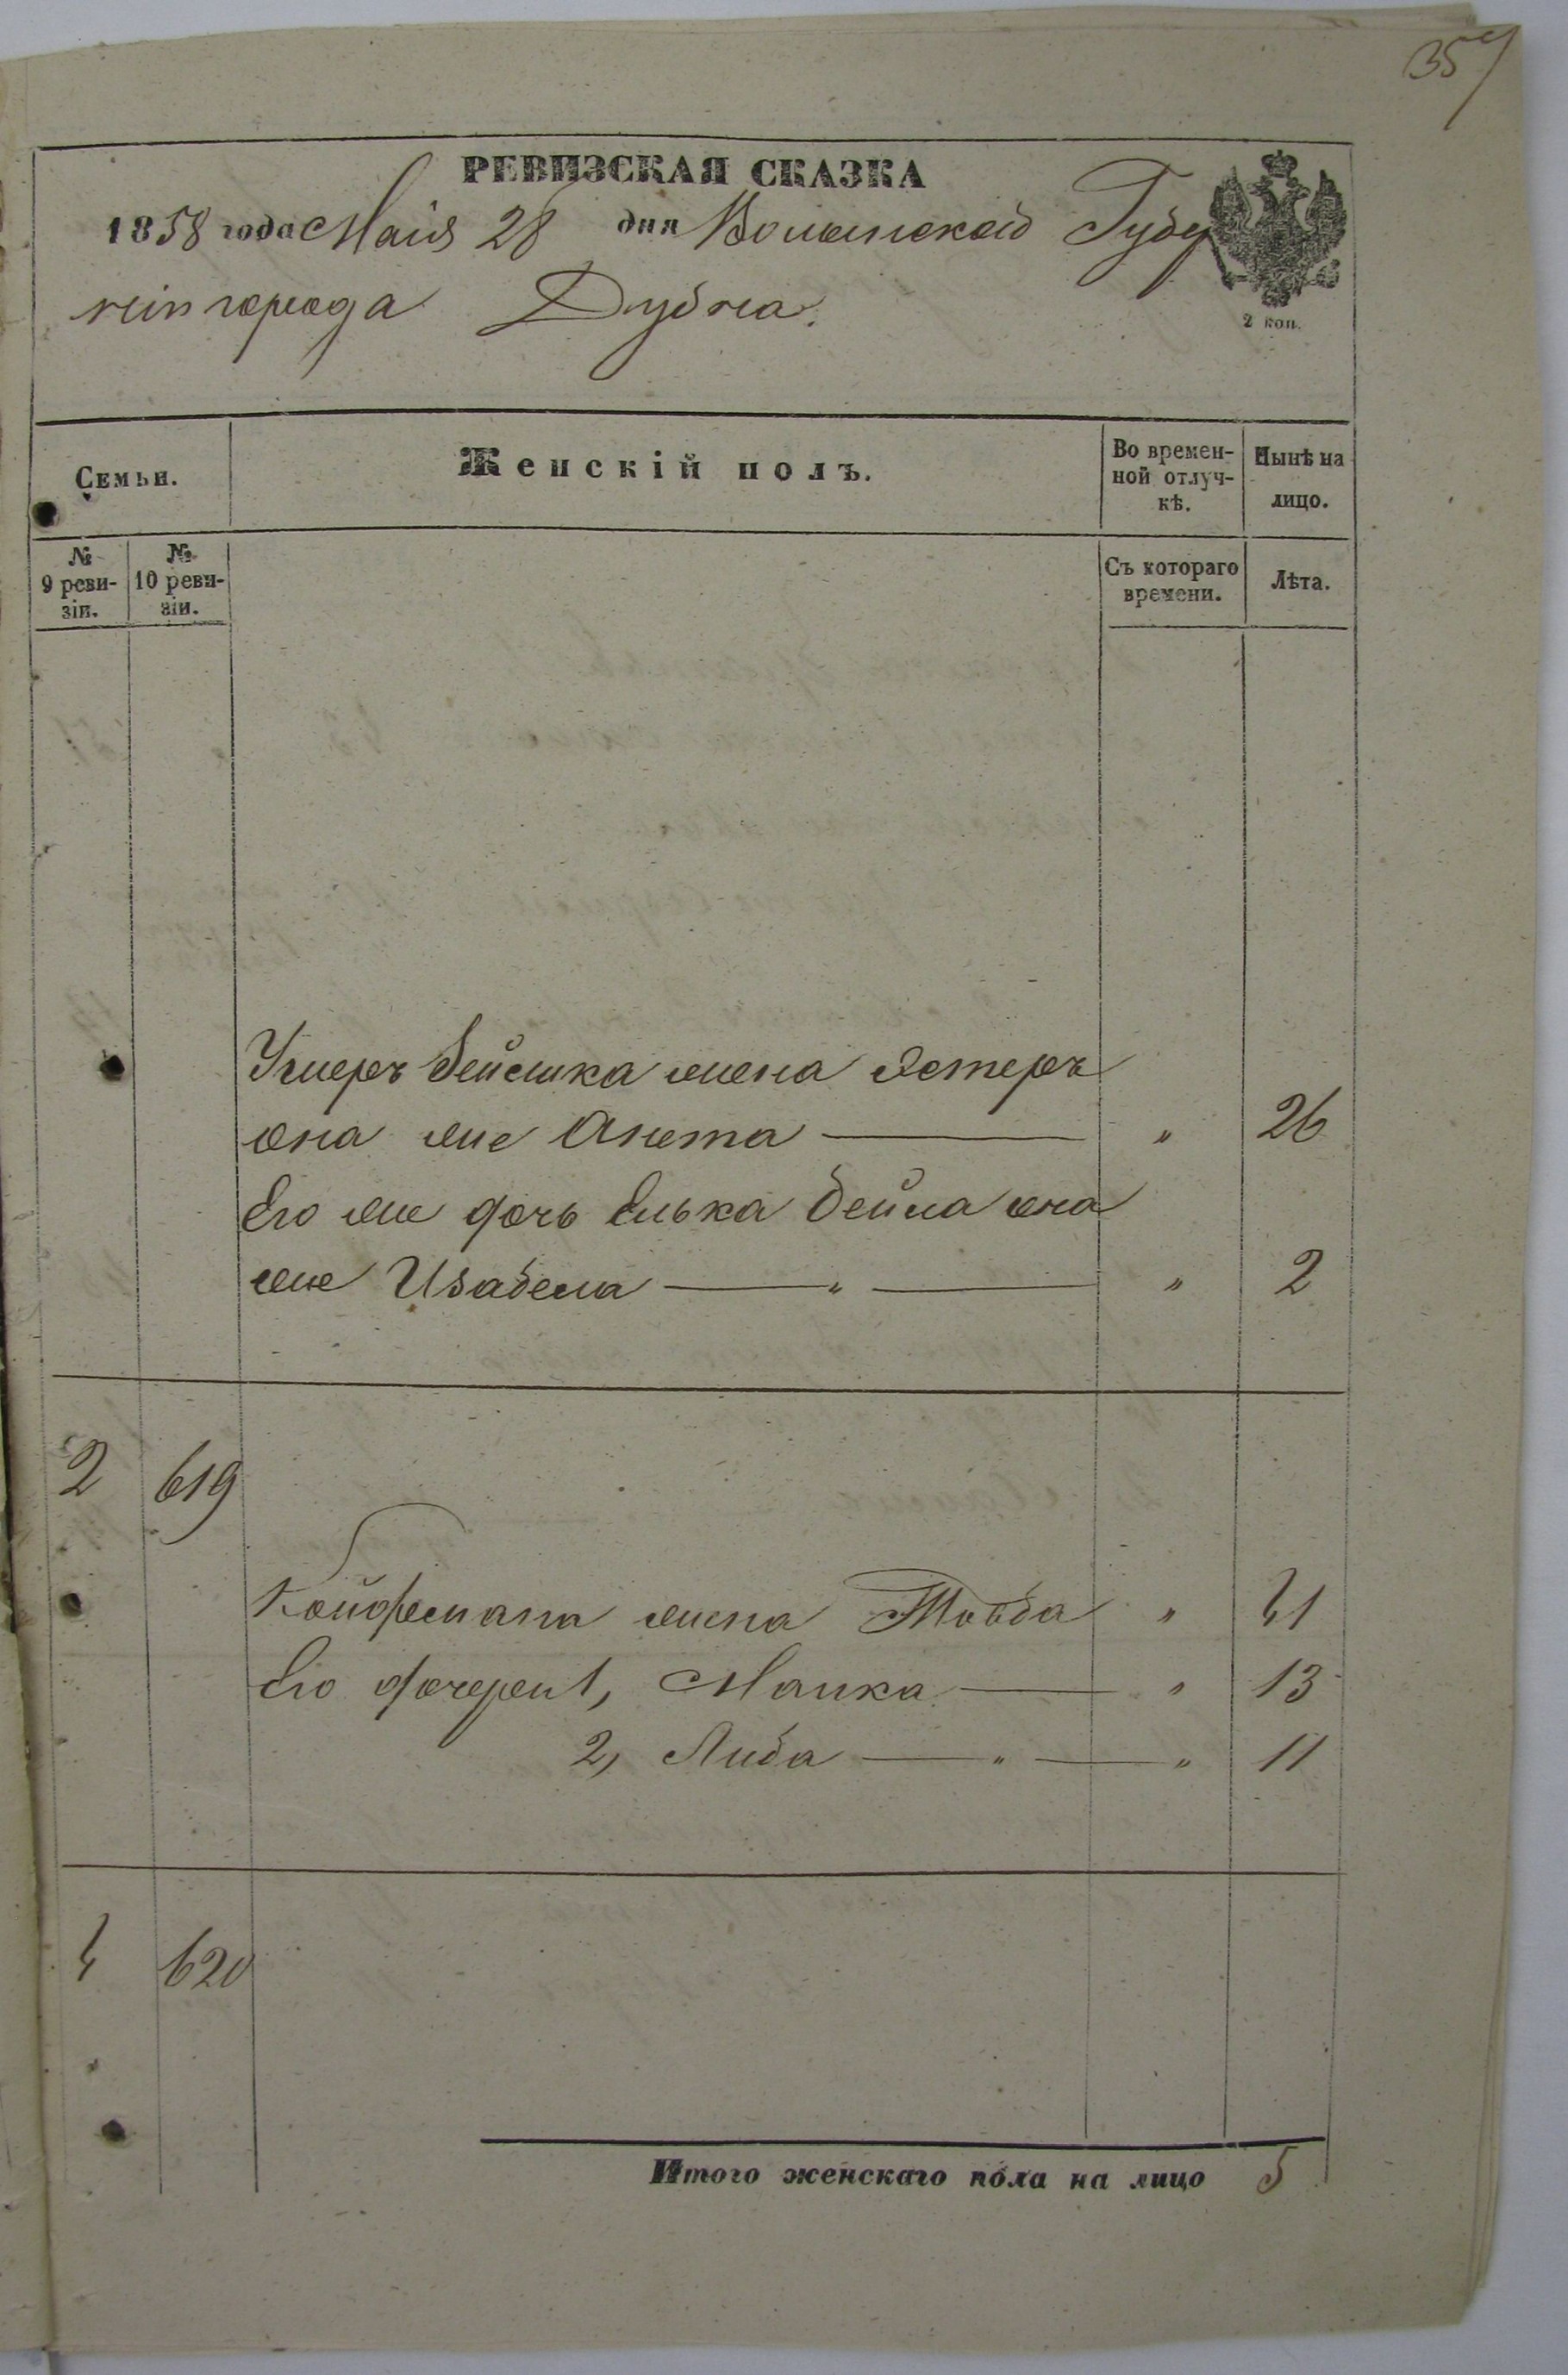 357
РЕВИЗСКАЯ СКАЗКА
1858 года Маія 28 дня Волынской Губер
ніи города Дубна.
2 коп.
Семьи.
Женскій полъ.
Во времен-
ной отлуч-
кѣ.
Нынѣ на
лицо.
№
9 реви-
зіи.
№
10 реви-
зіи.
Съ котораго
времени.
Лѣта.
жена Эстеръ
она же Анета — " 26
Его же дочь Елька Бейла она
же Изабела — " — " 2
2 619
жена Товба " 41
Его дочери 1, Малка — " 13
2, Либа — " — " 11
4 620
Итого женскаго пола на лицо 5